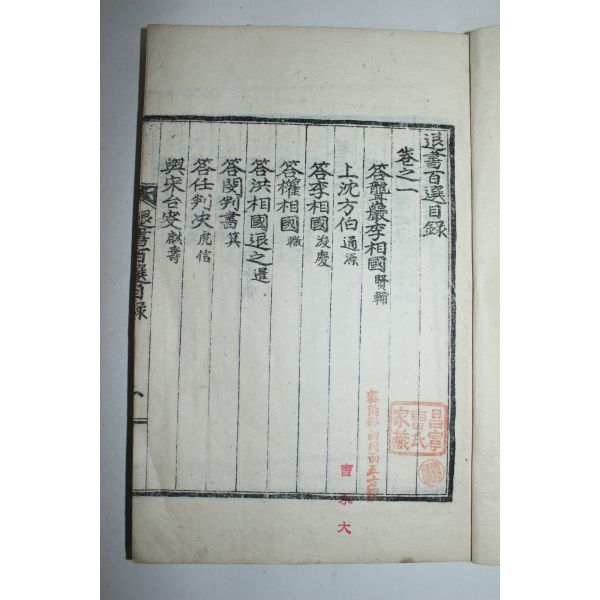 退書百選目録
卷之一
答聾巖李相國賢輔
上沈方伯通源
答李相國浚慶
答權相國轍
答洪相國退之暹
答閔判書箕
答任判决虎信
與宋台叟麒壽
退書百選目録
昌寧
曺氏
家藏
曺永大